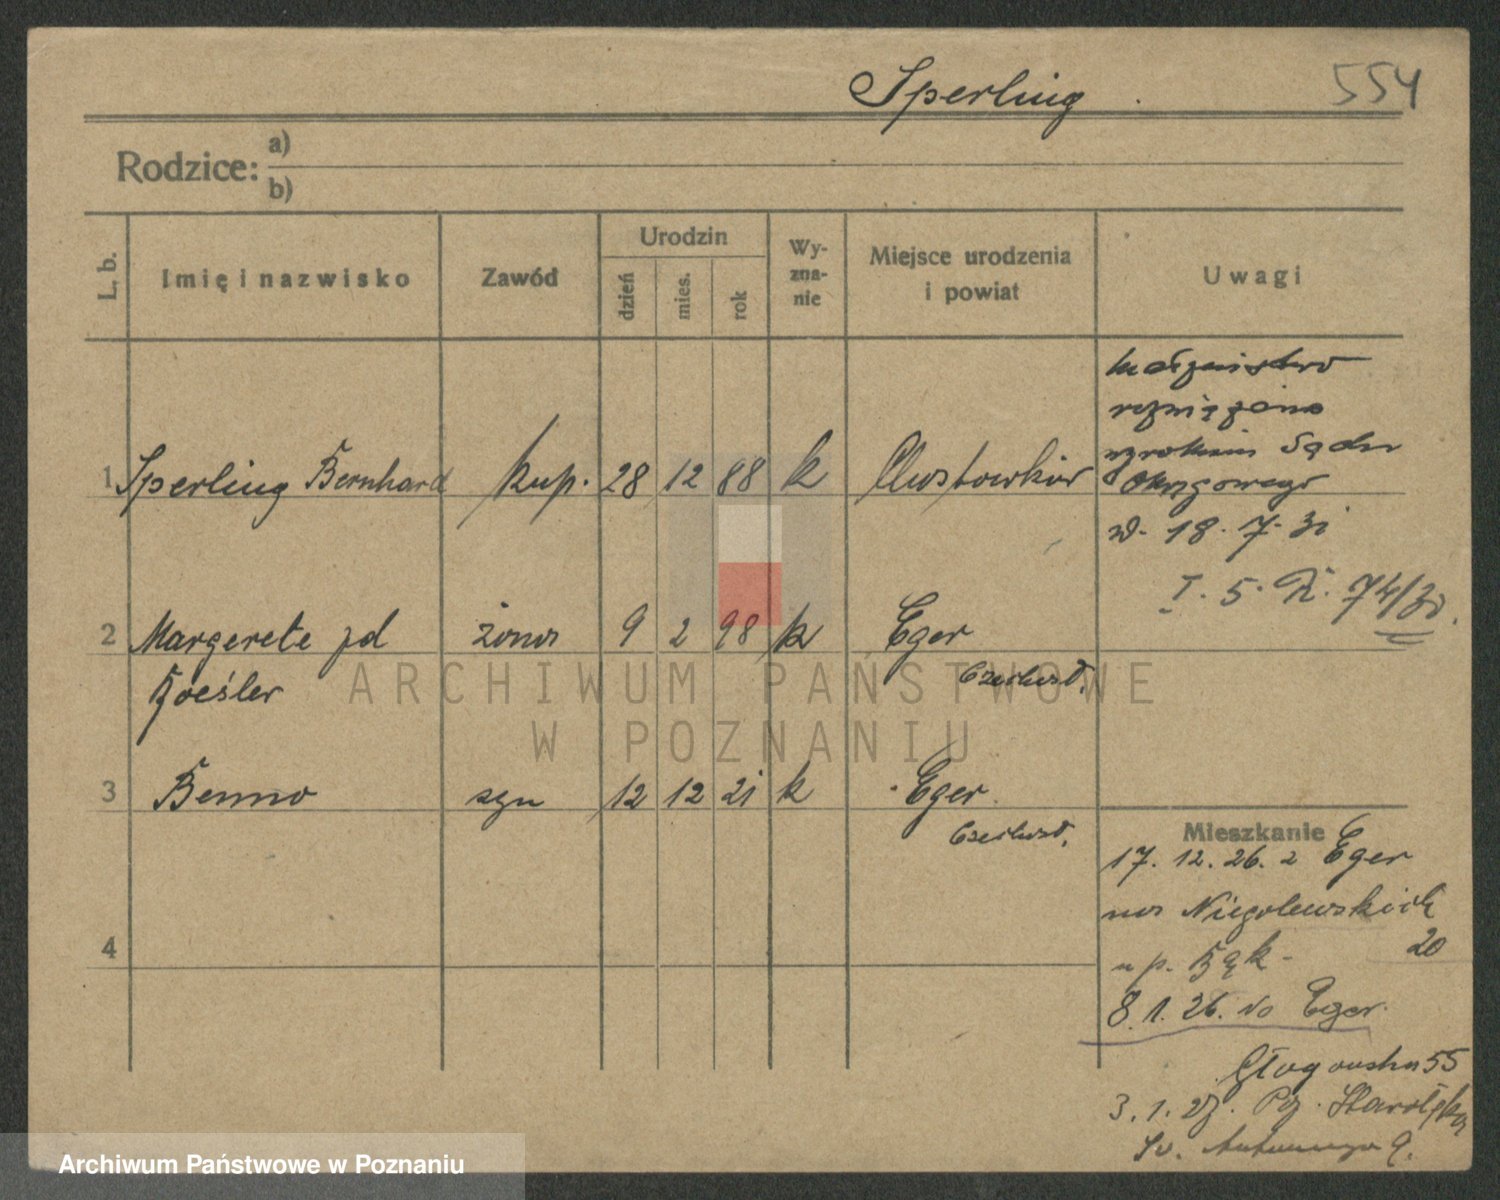 Sperling 554
Rodzice: a)
b)
L. b.
Imię i nazwisko
Zawód
Urodzin
dzień
mies.
rok
Wy-
zna-
nie
Miejsce urodzenia
i powiat
Uwagi
małżeństwo
rozwiązano
wyrokiem Sądu
Okręgowego
d. 18. 7. 31
I. 5. R. 74/30.
1 Sperling Bernhard kup. 28 12 88 k
2 Margerete żona 9 2 98 k Eger
Czechosł.
3 Benno syn 12 12 21 k Eger
Czechosł.
4
Mieszkanie
17. 12. 26. z Eger
na Niegolewskich
20
u p. Bąk
8. 1. 26. do Eger
Głogowska 55
3. 1. 27.
Św. Antoniego 9.
ARCHIWUM PAŃSTWOWE
W POZNANIU
Archiwum Państwowe w Poznaniu